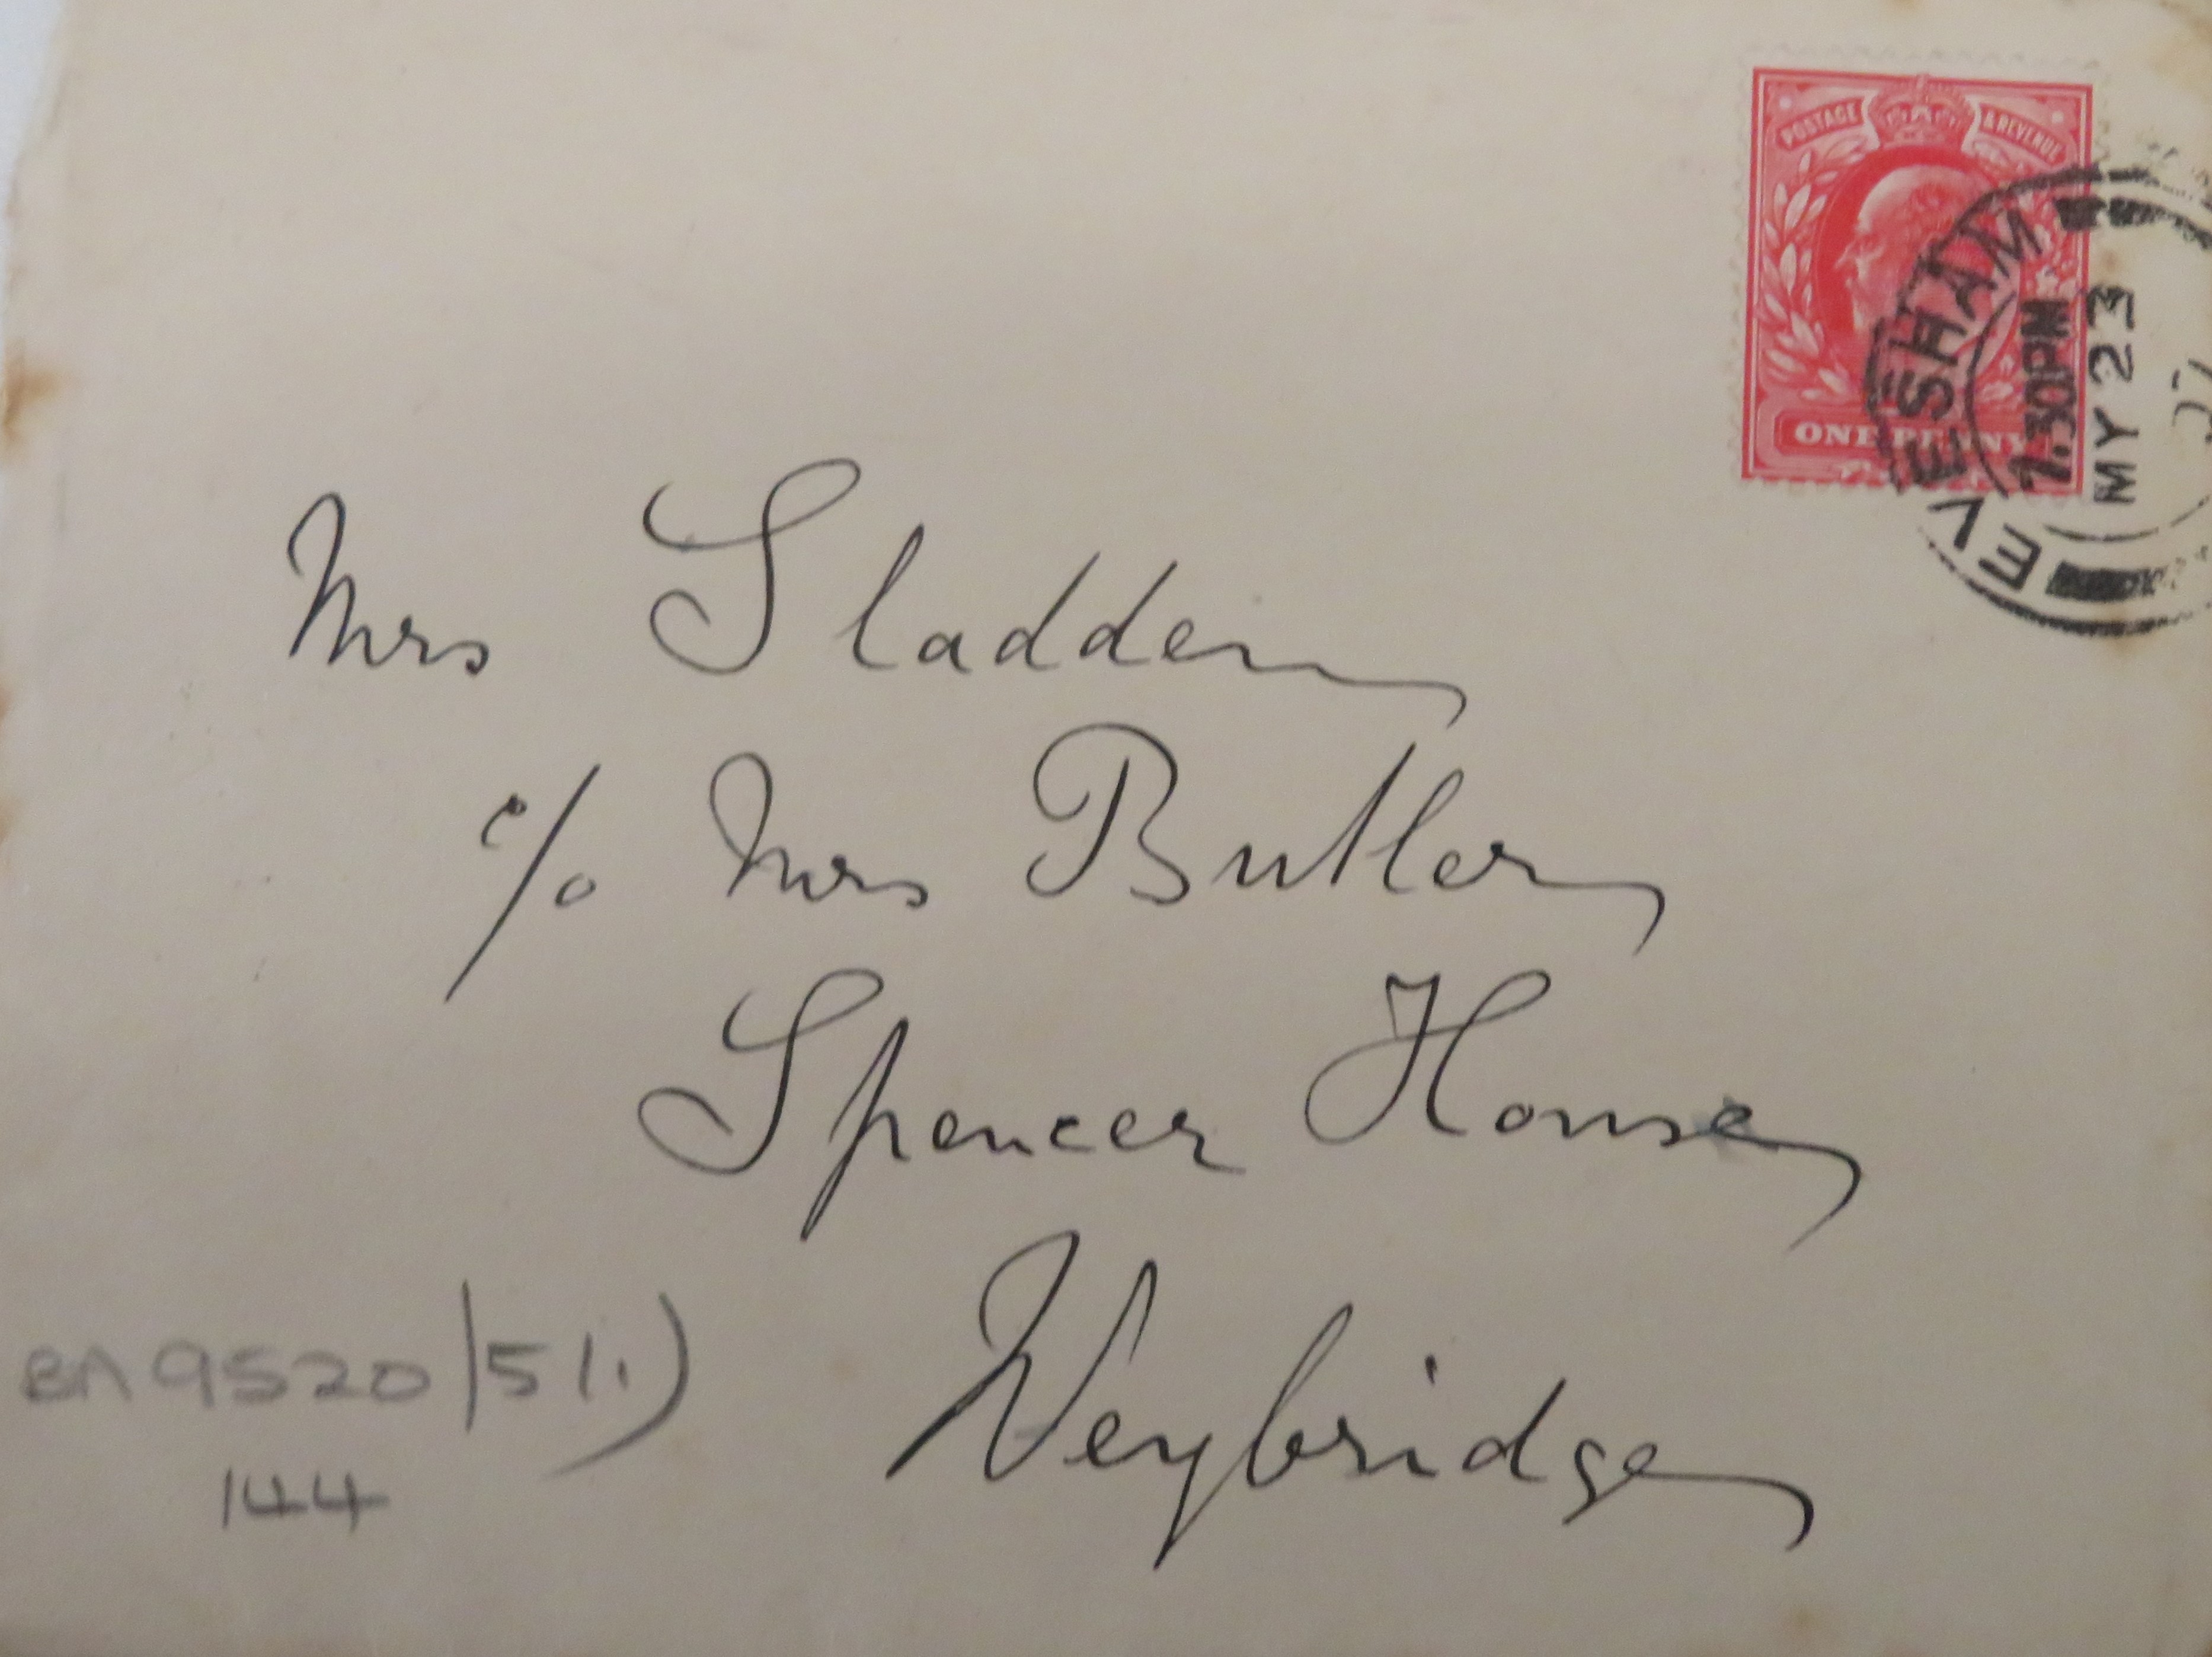 POSTAGE & REVENUE
ONE PENNY
EVESHAM
7.30PM
MY 23
07
Mrs Sladden
c/o Mrs Butler
Spencer House
Weybridge
BA 9520/5(i)
144